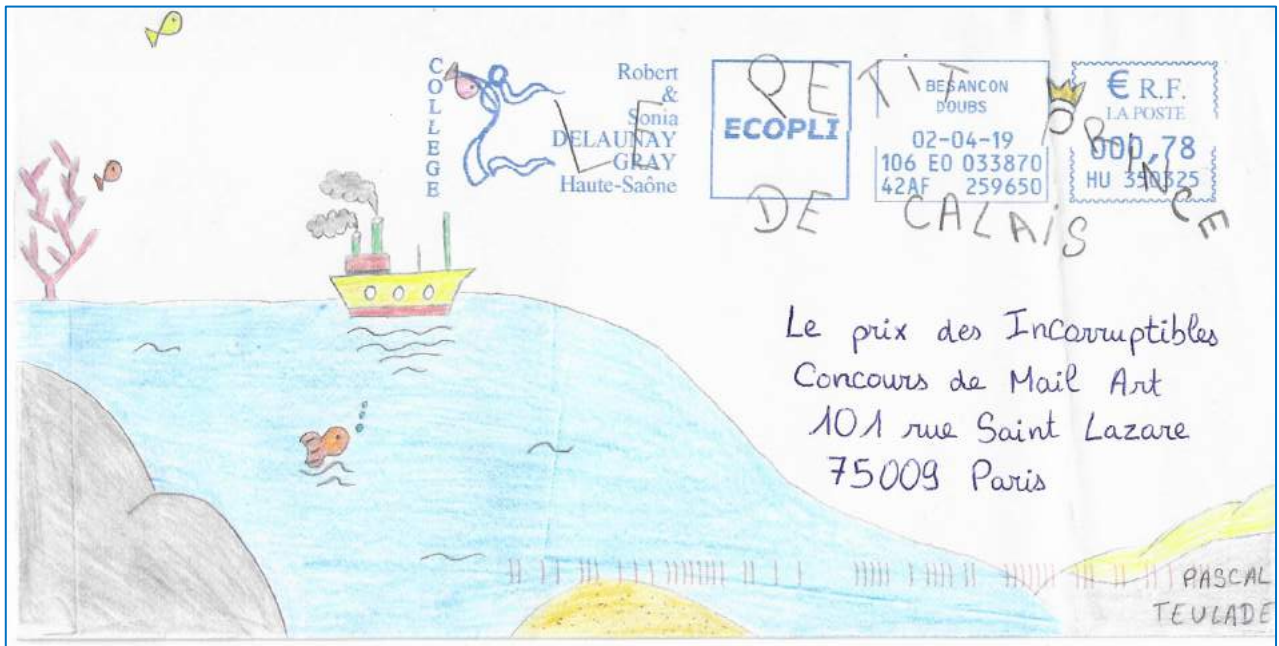 COLLEGE
Robert
&
Sonia
DELAUNAY
GRAY
Haute-Saône
ECOPLI
BESANCON
DOUBS
02-04-19
106 E0 033870
42AF 259650
€ R.F.
LA POSTE
000,78
HU 350325
LE PETIT PRINCE
DE CALAIS
Le prix des Incorruptibles
Concours de Mail Art
101 rue Saint Lazare
75009 Paris
PASCAL
TEULADE